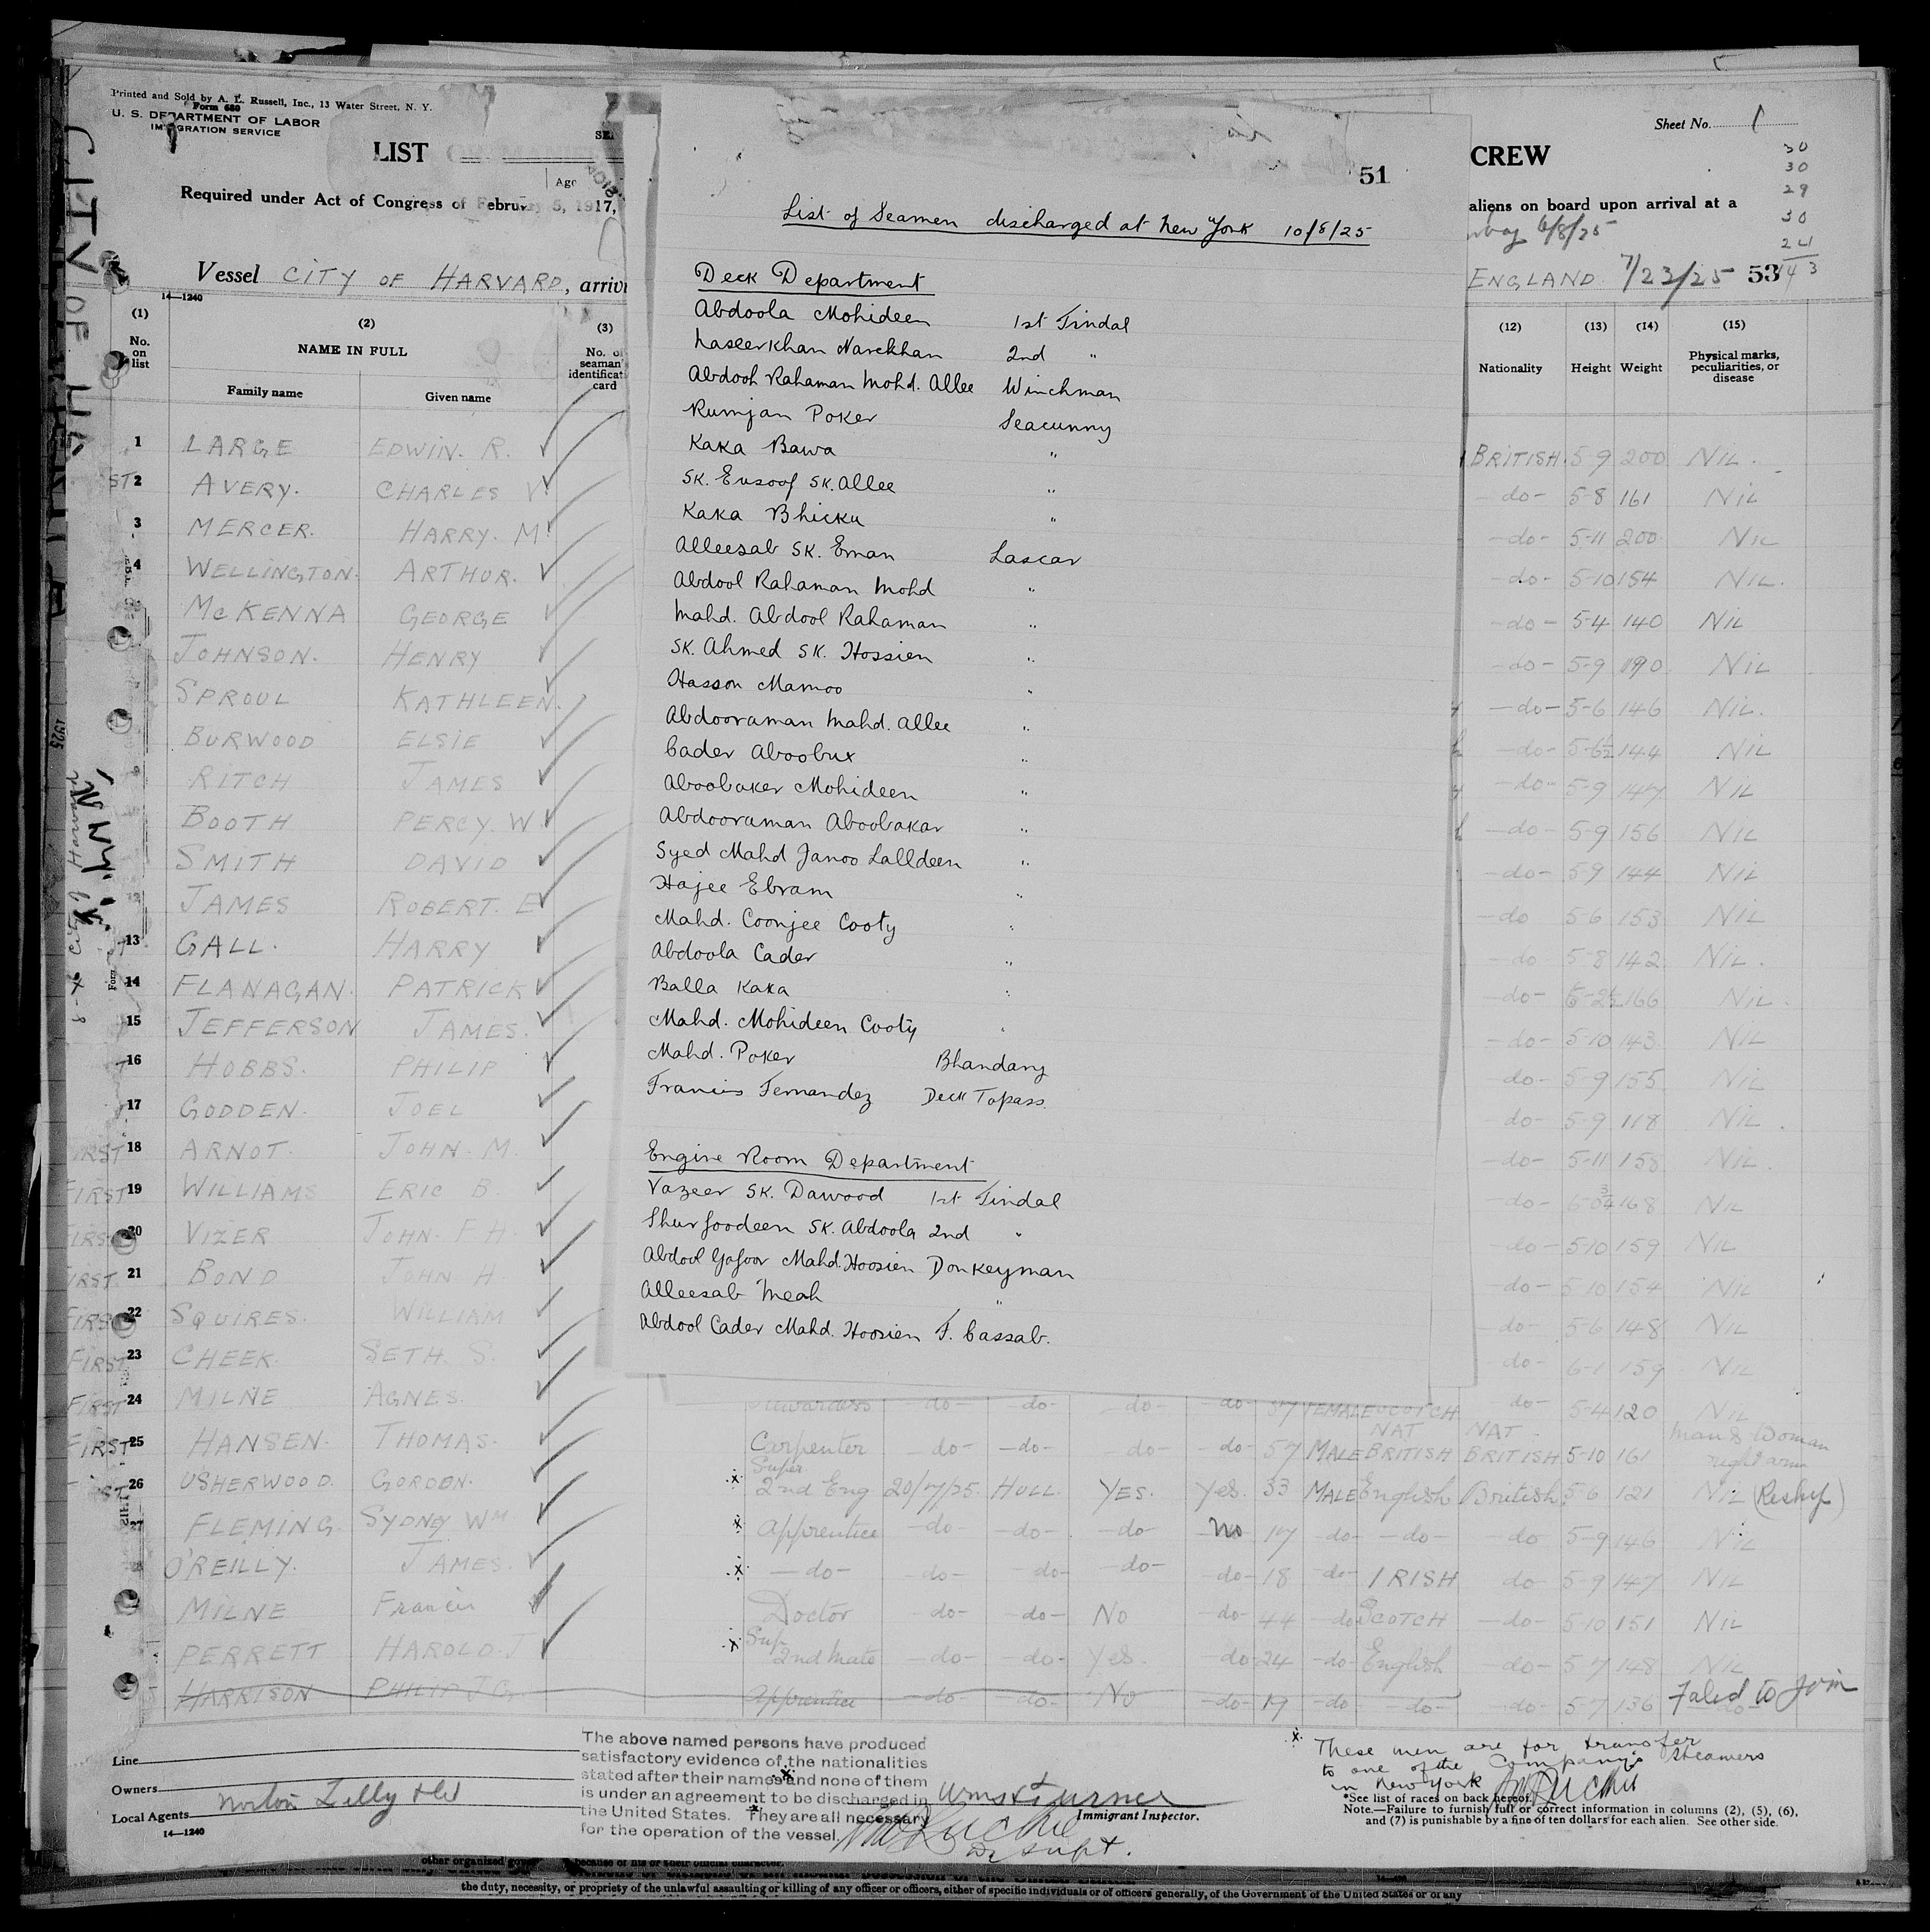 Printed and Sold by A. L. Russell, Inc., 13 Water Street, N. Y.
Form 680
U. S. DEPARTMENT OF LABOR
IMMIGRATION SERVICE
LIST
Required under Act of Congress of February 5, 1917,
Vessel CITY OF HARVARD, arrivi
14—1240
(1) No. on list
(2) NAME IN FULL
Family name Given name
(3) No. of seaman's identificat card
Sheet No. 1
CREW
aliens on board upon arrival at a
6/8/25
ENGLAND 7/23/25 53
30
30
29
30
24
143
(12) Nationality
(13) Height
(14) Weight
(15) Physical marks, peculiarities, or disease
51
List of Seamen discharged at New York 10/8/25
Deck Department
Abdoola Mohideen 1st Tindal
Naseerkhan Narekhan 2nd "
Abdool Rahaman Mohd. Allee Winchman
Rumjan Poker Seacunny
Kaka Bawa "
SK. Eusoof SK. Allee "
Kaka Bhicku "
Alleesab SK. Eman Lascar
Abdool Rahaman Mohd "
Mahd. Abdool Rahaman "
SK. Ahmed SK. Hossien "
Hasson Mamoo "
Abdooraman Mahd. Allee "
Cader Aboobux "
Aboobaker Mohideen "
Abdooraman Aboobakar "
Syed Mahd Janoo Lalldeen "
Hajee Ebram "
Mahd. Coonjee Cooty "
Abdoola Cader "
Balla Kaka "
Mahd. Mohideen Cooty "
Mahd. Poker Bhandary
Francis Fernandez Deck Topass
Engine Room Department
Vazeer SK. Dawood 1st Tindal
Shurfoodeen SK. Abdoola 2nd "
Abdool Gafoor Mahd. Hoosien Donkeyman
Alleesab Meah "
Abdool Cader Mahd. Hoosien F. Cassab.
1 LARGE EDWIN. R. BRITISH. 5-9 200 NIL.
2 AVERY. CHARLES V. -do- 5-8 161 NIL
3 MERCER. HARRY. M. -do- 5-11 200 NIL
4 WELLINGTON. ARTHUR. -do- 5-10 154 NIL.
McKENNA GEORGE -do- 5-4 140 NIL
JOHNSON. HENRY -do- 5-9 190 NIL
SPROUL KATHLEEN. -do- 5-6 146 NIL.
BURWOOD ELSIE -do- 5-6½ 144 NIL
RITCH JAMES -do- 5-9 147 NIL
BOOTH PERCY. W. -do- 5-9 156 NIL
SMITH DAVID -do- 5-9 144 NIL
JAMES ROBERT. E. -do 5-6 153 NIL
13 GALL. HARRY -do 5-8 142 NIL.
14 FLANAGAN. PATRICK -do- 166 NIL.
15 JEFFERSON JAMES. -do- 5-10 143 NIL
16 HOBBS. PHILIP -do- 5-9 155 NIL
17 GODDEN. JOEL -do- 5-9 118 NIL.
18 ARNOT. JOHN. M. -do- 5-11 158 NIL.
FIRST 19 WILLIAMS ERIC B. -do- 168 NIL
20 VIZER JOHN. F. H. -do- 5-10 159 NIL
21 BOND JOHN H. -do- 5-10 154 NIL
22 SQUIRES. WILLIAM -do- 5-6 148 NIL
FIRST 23 CHEEK. SETH. S. -do- 6-1 159 NIL
FIRST 24 MILNE AGNES. Stewardess -do- -do- -do- -do- 37 FEMALE SCOTCH do- 5-4 120 NIL
FIRST 25 HANSEN. THOMAS. Carpenter -do- -do- -do- -do- 57 MALE NAT BRITISH NAT BRITISH 5-10 161 Man & Woman right arm
26 USHERWOOD. GORDON. x Super 2nd Eng 20/7/25. HULL. YES. Yes. 33 MALE English British 5-6 121 NIL (Reship)
27 FLEMING. SYDNEY Wm x Apprentice -do- -do- -do- No 17 -do- -do- -do 5-9 146 NIL
O'REILLY. JAMES. x -do- -do- -do- -do- -do- 18 -do- IRISH do 5-9 147 NIL
MILNE Francis Doctor -do- -do- No -do- 44 -do- SCOTCH -do- 5-10 151 NIL
PERRETT HAROLD. J x Sup. 2nd Mate -do- -do- Yes. -do- 24 -do- English -do- 5-7 148 NIL
HARRISON PHILIP J G. Apprentice -do- -do- No -do- 19 -do- -do- -do- 5-7 136 Failed to Join
Line
Owners
Local Agents Norton Lilly & Co
14—1240
The above named persons have produced
satisfactory evidence of the nationalities
stated after their names and none of them
is under an agreement to be discharged in
the United States. They are all necessary
for the operation of the vessel.
Immigrant Inspector.
x These men are for transfer
to one of the Company's steamers
in New York
*See list of races on back hereof.
Note.—Failure to furnish full or correct information in columns (2), (5), (6),
and (7) is punishable by a fine of ten dollars for each alien. See other side.
because of his or their official character.
the duty, necessity, or propriety of the unlawful assaulting or killing of any officer or officers, either of specific individuals or of officers generally, of the Government of the United States or of any